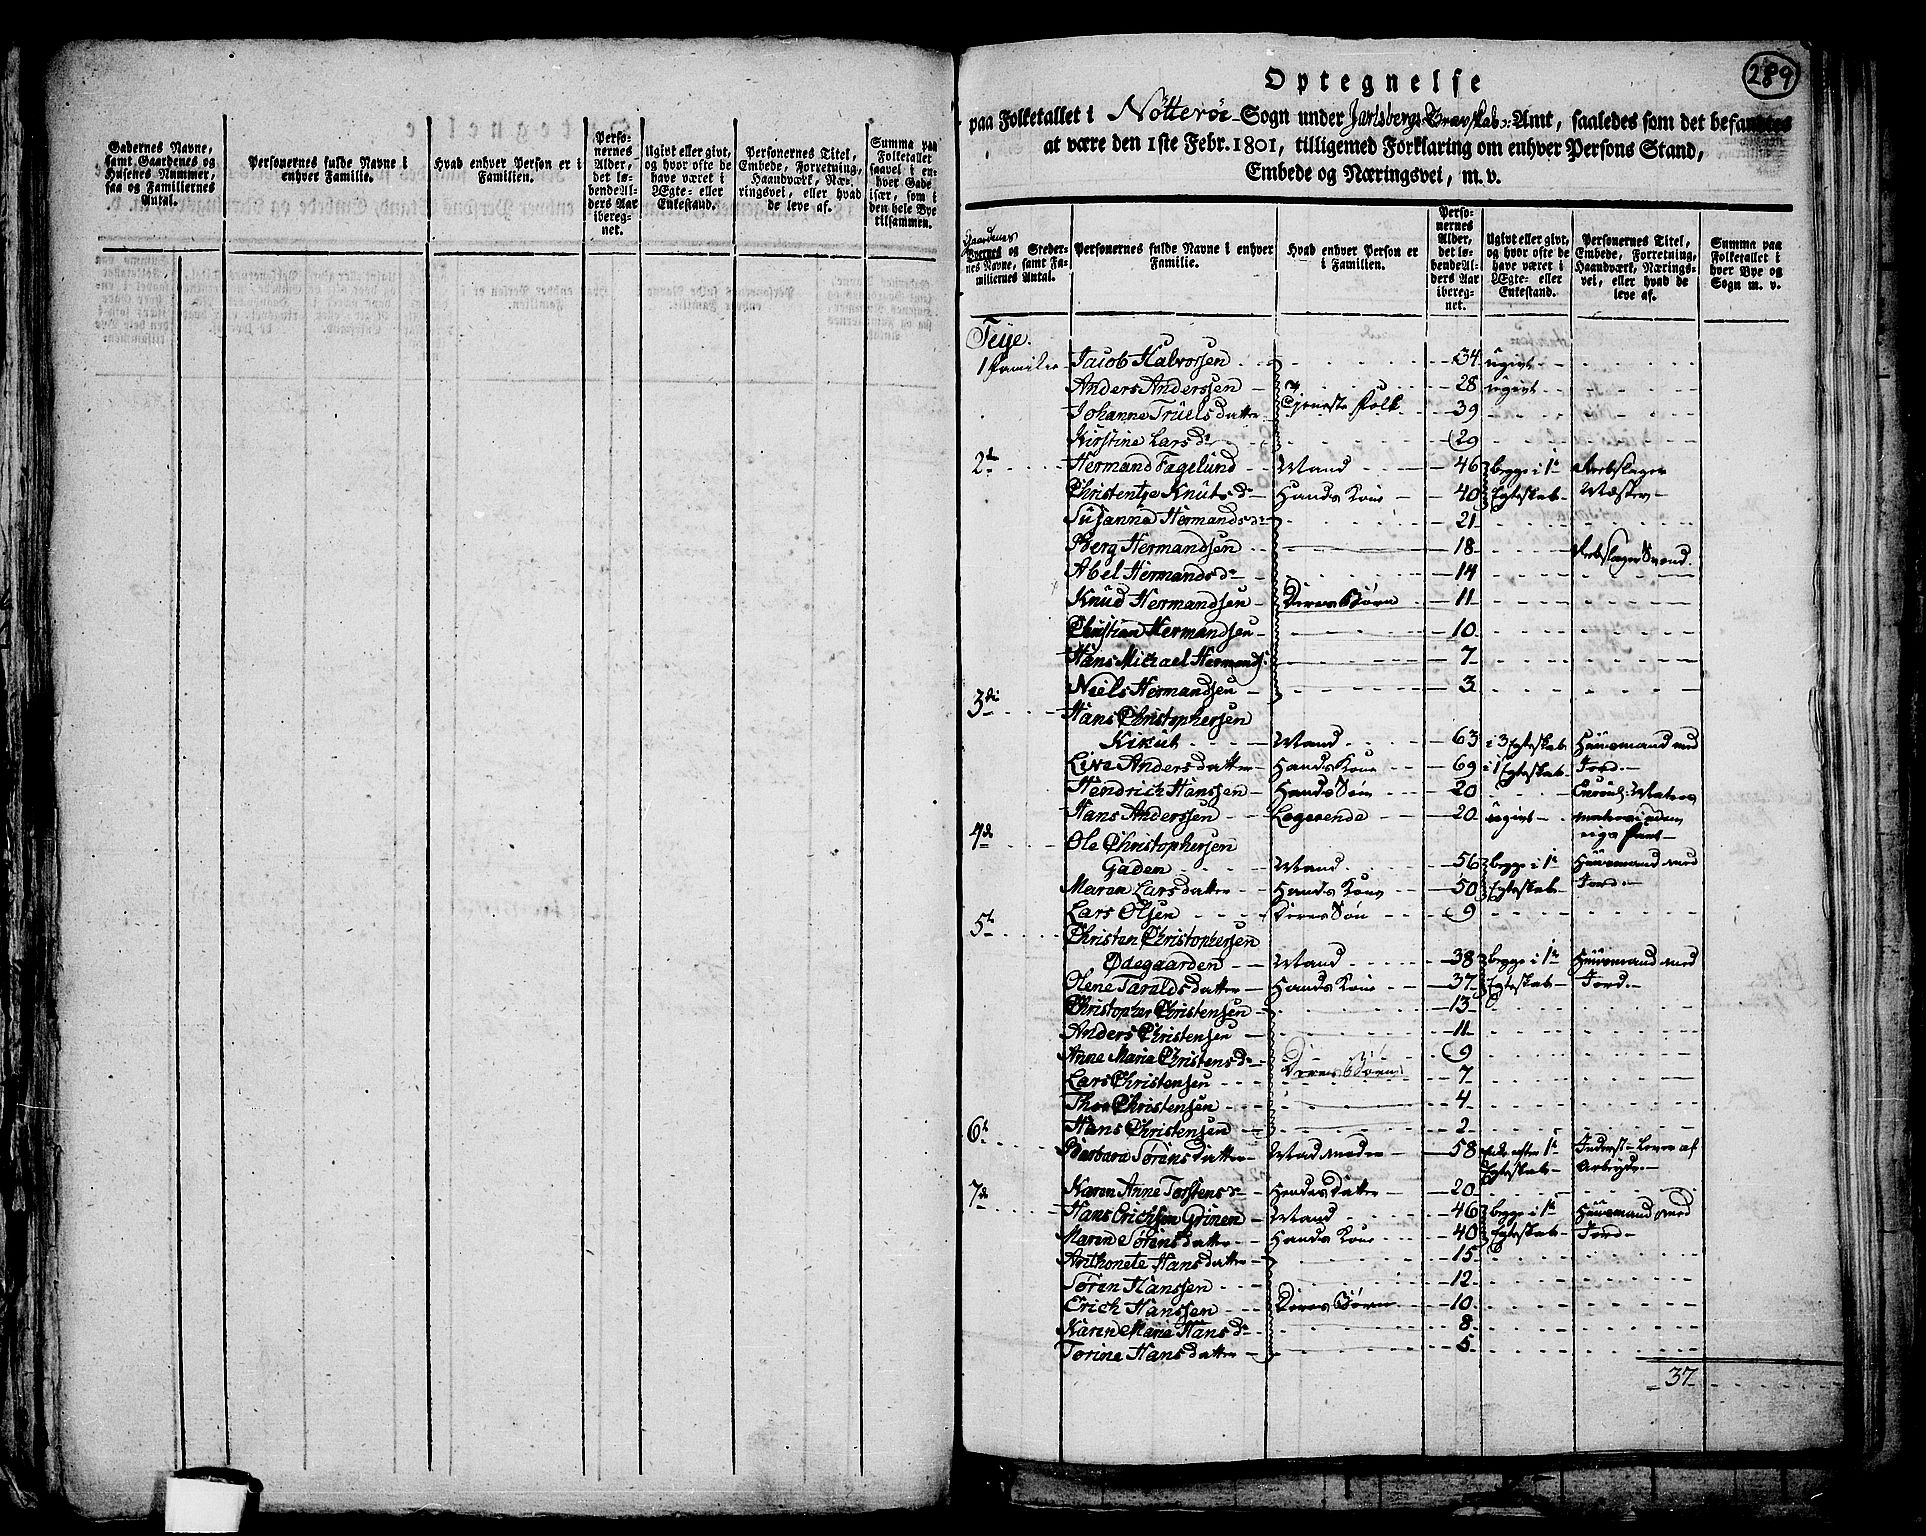 Gadernes Navne, samt Gaardenes og Husenes Nummer, saa og Familiernes Antal.
Personernes fulde Navne i enhver Familie.
Hvad enhver Person er i Familien.
Personernes Alder, det løbende Alders Aar iberegnet.
Ugivt eller givt, og hvor ofte de have været i Ægte- eller Enkestand.
Personernes Titel, Embede, Forretning, Haandværk, Næringsvei, eller hvad de leve af.
Summa paa Folketallet saavel i enhver Gade især, som i den hele Bye tilsammen.
289
Optegnelse
paa Folketallet i Nötteröe Sogn under Jarlsbergs Grevskabs Amt, saaledes som det befandtes
at være den 1ste Febr. 1801, tilligemed Forklaring om enhver Persons Stand,
Embede og Næringsvei, m. v.
Gaardenes
Byernes og Stedernes Navne, samt Familiernes Antal.
Personernes fulde Navne i enhver Familie.
Hvad enhver Person er i Familien.
Personernes Alder, det løbende Alders Aar iberegnet.
Ugivt eller givt, og hvor ofte de have været i Ægte- eller Enkestand.
Personernes Titel, Embede, Forretning, Haandværk, Næringsvei, eller hvad de leve af.
Summa paa Folketallet i hver Bye og Sogn m. v.
Teye.
1 Familie Jacob Halvorssen 34 ugivt
Anders Anderssen 28 ugivt
Johanne Truels datter Tjeneste Folk 39
Kirstine Lars d. 29
2d Hermand Fagelund Mand 46 begge i 1te Rebslager
Christentze Knuts d. Hands Kone 40 Egteskab Mester
Susanna Hermands d. 21
Berg Hermandsen 18 Rebslager Svend
Abel Hermands d. 14
Knud Hermandsen Deres Börn 11
Christian Hermandsen 10
Hans Michael Hermands. 7
Niels Hermandsen 3
3di Hans Christophersen
Kikut Mand 63 i 3 Egteskab Huusmand med
Live Anders datter Hands Kone 69 i 1 Egteskab Jord
Hendrich Hanssen Hands Sön 20
Hans Anderssen Logerende 20 ugivt
4de Ole Christophersen
Gaden Mand 56 begge i 1te Huusmand med
Maren Lars datter Hands Kone 50 Egteskab Jord
Lars Olsen Deres Sön 9
5te Christen Christophersen
Ødegaarden Mand 38 begge i 1te Huusmand med
Olene Taralds datter Hands Kone 37 Egteskab Jord
Christopher Christensen 13
Anders Christensen 11
Anne Maria Christens d. 9
Lars Christensen Deres Börn 7
Thor Christensen 4
Hans Christensen 2
6te Barbara Sörens datter Madmoder 58 Enke efter 1te Inderst Lever af
Egteskab Arbeyde
Karen Anne Torstens d. Hendes datter 20
7de Hans Erichsen Grinen Mand 46 begge i 1te Huusmand med
Maren Sörens datter Hands Kone 40 Egteskab Jord
Anthonete Hans datter 15
Sören Hanssen 12
Erich Hanssen Deres Börn 10
Karen Maria Hans d. 8
Torine Hans datter 5
37